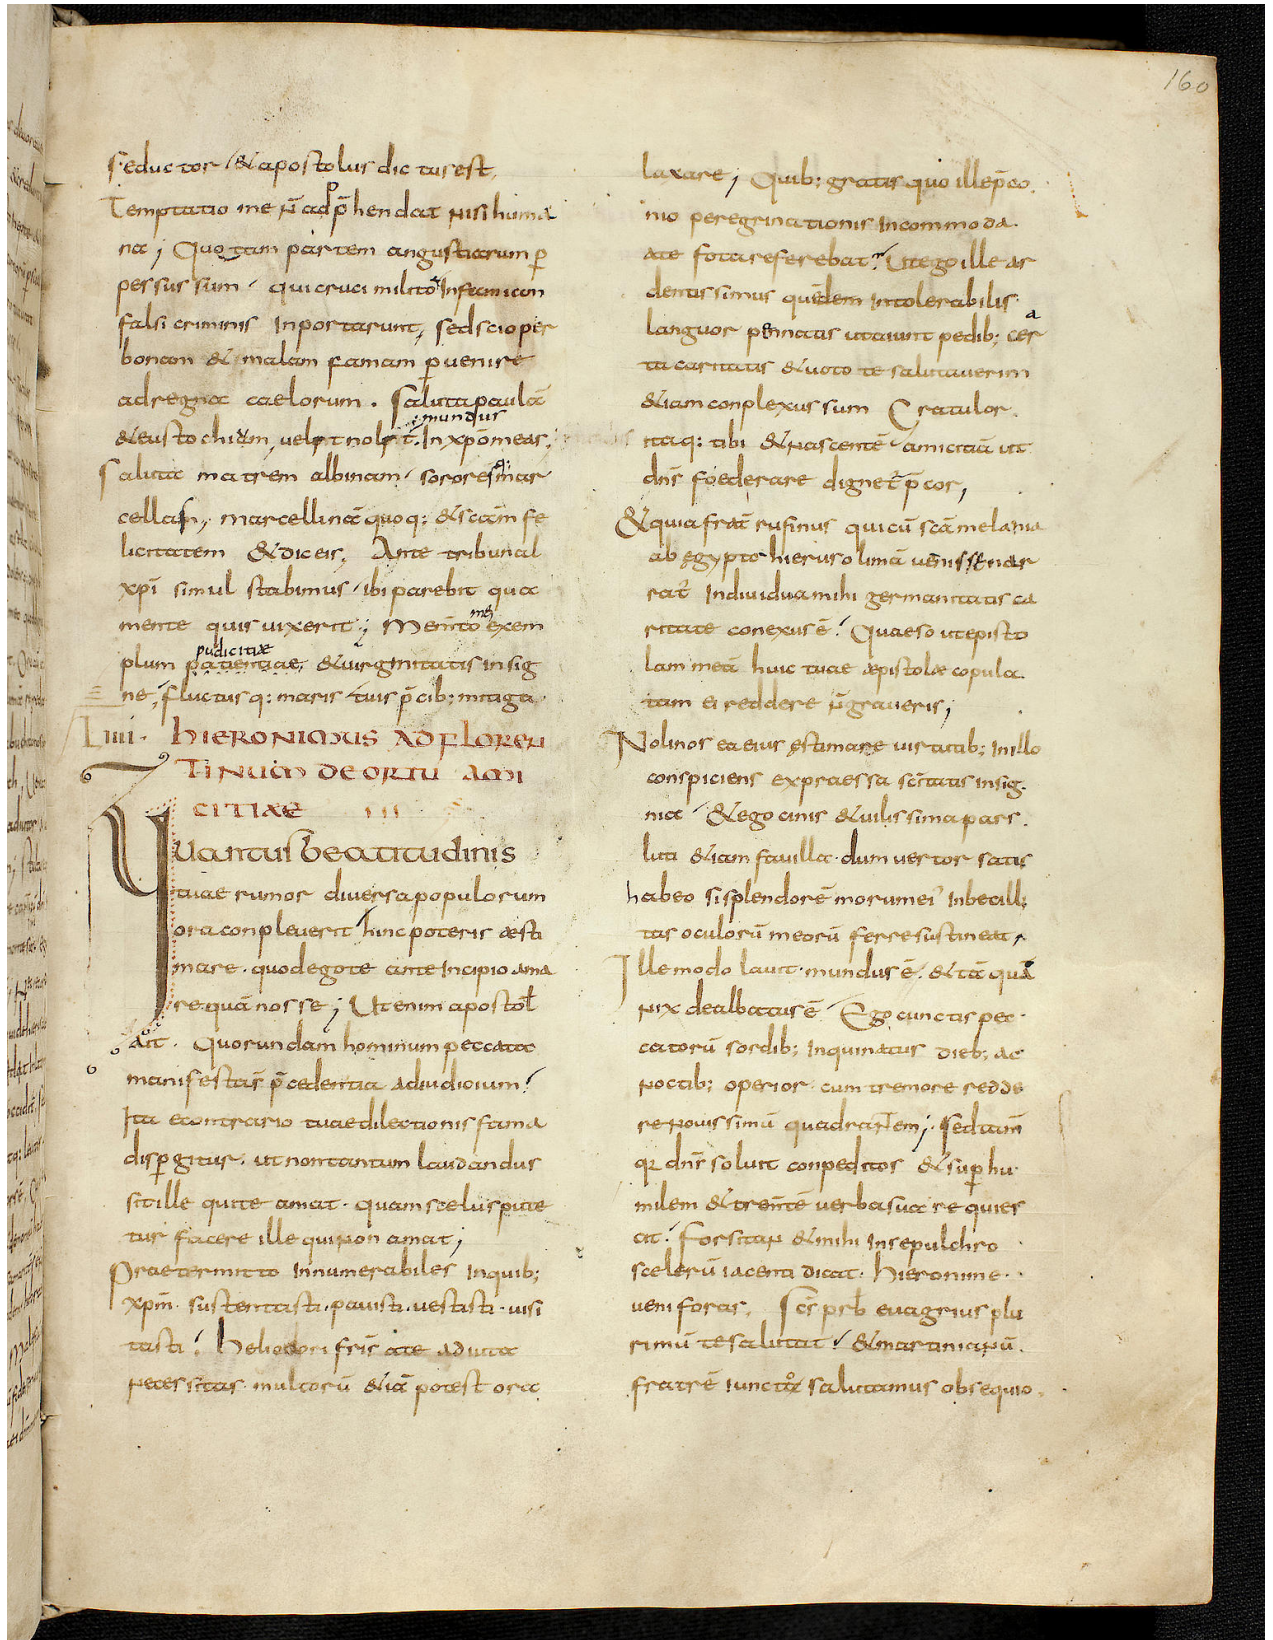 160
seductor & apostolus dictus est.
Temptatio me n̄ adp̄hendat nisi huma
na; Quotam partem angustiarum ꝑ
pessus sum qui cruci milito Infamiam
falsi criminis Inportarunt, sed scio per
bonam & malam famam ꝑvenire
ad regna caelorum. Saluta paulā
mundus
& eustochium, velit nolit. In xp̄o meas.
Saluta matrem albinam sorores q; mar
cellas, marcellinā quoq; & sc̄am fe
licitatem & dic eis. Ante tribunal
xp̄i simul stabimus ibi parebit qua
mente quis vixerit; Mem̄to mei exem
pudicitiae
plum patientiae, & virginitatis insig
ne, fluctusq: maris tuis p̄cib; mitiga
Liii. HIERONIMUS AD FLOREN
TINUM DE ORTU AMI
CITIAE III
Quantus beatitudinis
tuae rumor diversa populorum
ora conpleverit hinc poteris aesti
mare. quod ego te ante Incipio ama
re quā nosse; Ut enim apostol
ait. Quorundam hominum peccata
manifesta s̄ p̄cedentia ad iudicium.
Ita econtrario tuae dilectionis fama
disꝑgitur. ut non tantum laudandus
sit ille qui te amat. quam scelus pute
tur facere ille qui non amat;
Praetermitto innumerabiles Inquib;
xp̄m. sustentasti. pavisti. vestisti. visi
tasti. Heliodori fr̄is a te adiuta
necessitas multorū & iā potest ora
laxare; Quib; gratis quo ille p̄co
nio peregrinationis Incommoda
a te fota referebat. Ut ego ille ar
dentissimus quidem Intolerabilis
languor pennatis ut aiunt pedib; cer
ta caritatis & voto te salutaverim
& iam conplexus sum Gratulor
itaq: tibi & nascentē amicitiā ut
dn̄s foederare dignet̄ p̄cor,
& quia frat̄ rufinus qui cū sc̄a melania
ab egypto hierusolimā venisse nar
rat̄ Individua mihi germanitatis ca
ritate conexus ē. Quaeso ut episto
lam meā huic tuae aepistolae copula
tam ei reddere n̄ graveris,
Noli nos ea eius estimare virtutib; In illo
conspiciens expraessa sc̄itatis insig
nia & ego cinis & vilissima pars
luti & iam favilla. dum vertor satis
habeo si splendorē morum ei' Inbecilli
tas oculorū meorū ferre sustineat,
Ille modo lavit. mundus ē. & tā quā
nix dealbatus ē Ego cunctis pec
catorū sordib; Inquinatus dieb; ac
noctib; operior cum tremore redde
re novissimū quadrantem; sed tam̄
qꝛ dn̄s solvit conpeditos & suꝑ hu
milem & trem̄tē verba sua requies
cit. Forsitan & mihi In sepulchro
scelerū iacenti dicat. Hieronime
veni foras. Sc̄s prb̄ evagrius plu
rimū te salutat & martinianū
fratrē iuncto salutamus obsequio.